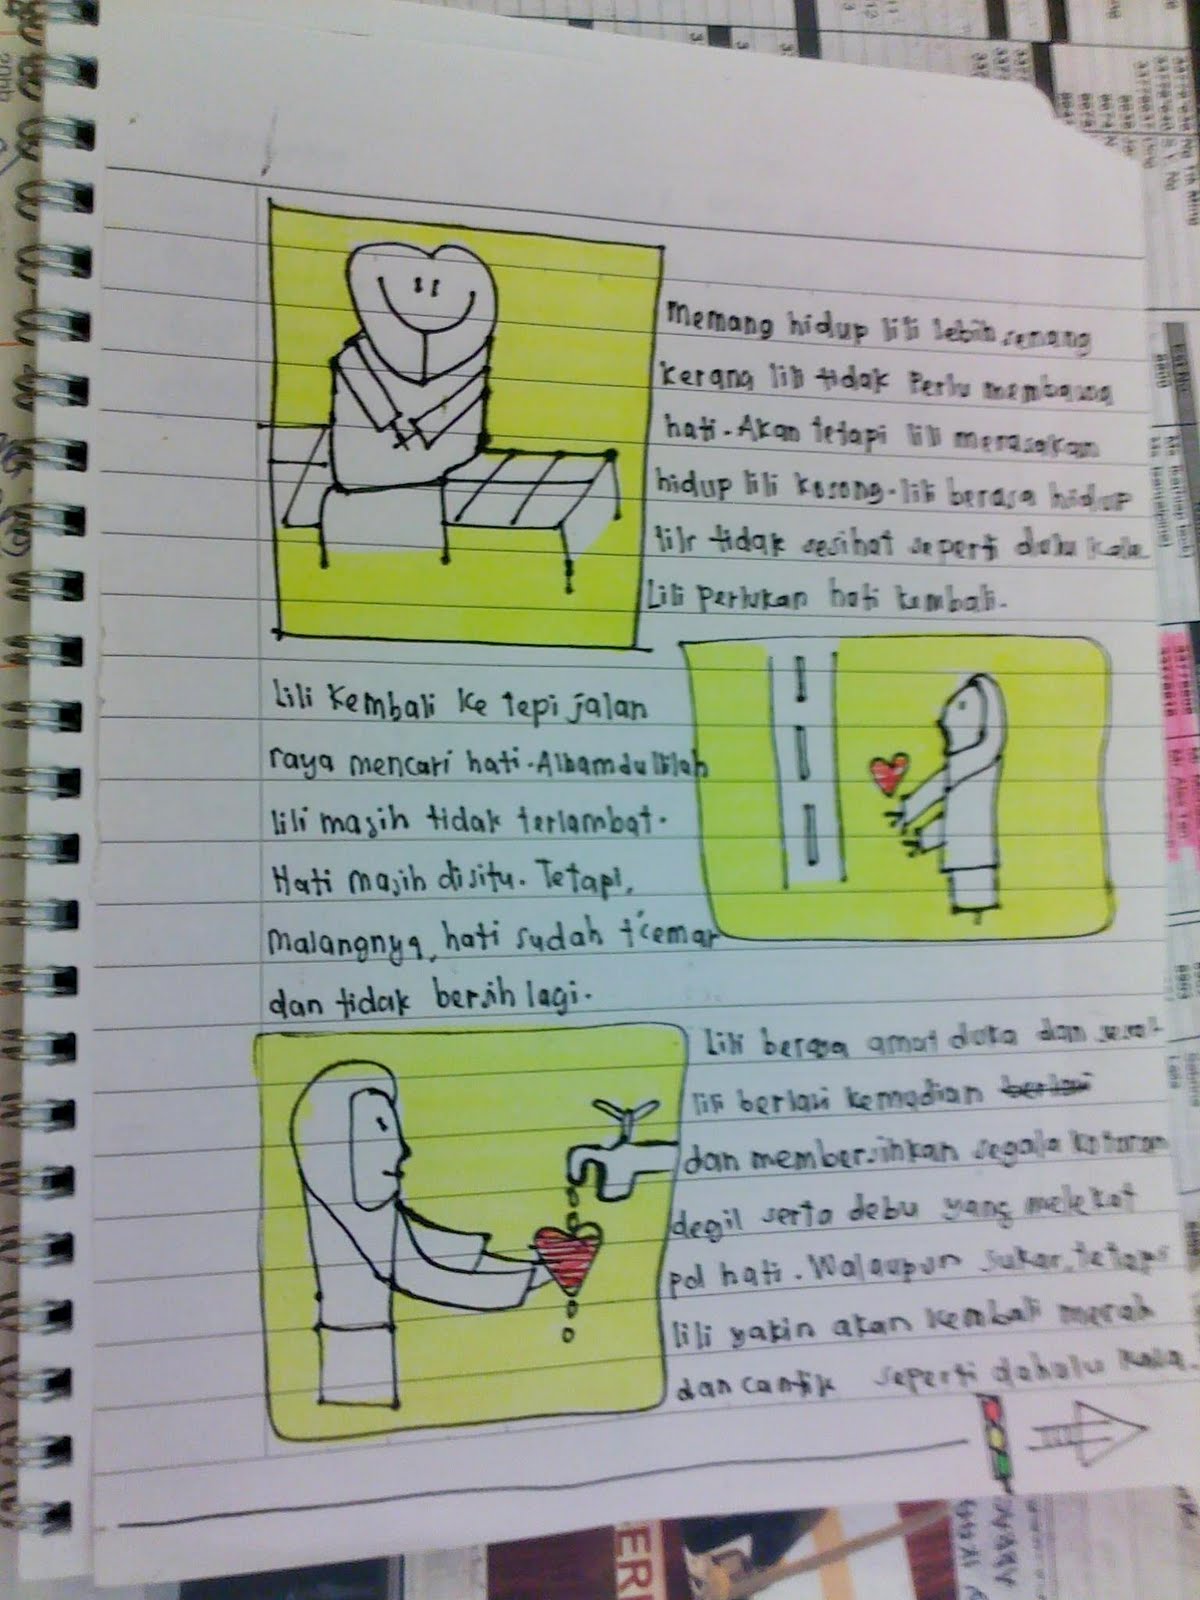 Memang hidup lili lebih senang
kerana lili tidak Perlu membawa
hati. Akan tetapi lili merasakan
hidup lili kosong. lili berasa hidup
lili tidak sesihat seperti dulu kala
Lili perlukan hati kembali.
Lili Kembali ke tepi jalan
raya mencari hati. Alhamdulillah
lili masih tidak terlambat.
Hati masih disitu. Tetapi,
malangnya, hati sudah t'cemar
dan tidak bersih lagi.
Lili berasa amat duka dan sesal
lili berlari kemudian berlari
dan membersihkan segala kotoran
degil serta debu yang melekat
pd hati. Walaupun sukar, tetapi
lili yakin akan kembali merah
dan cantik seperti dahulu kala.
ERI